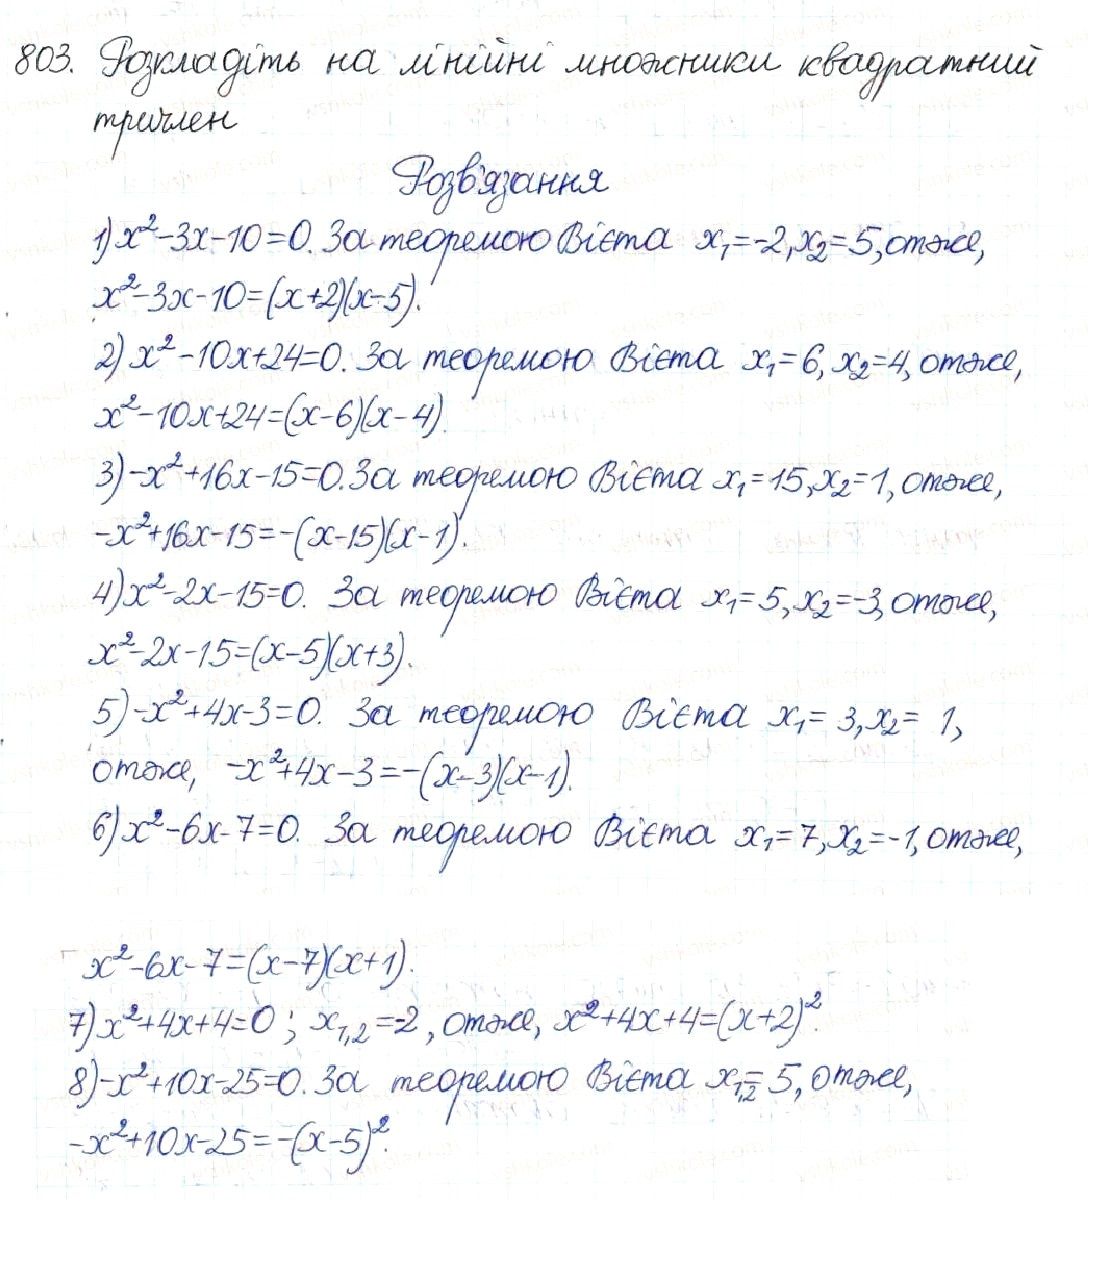 803. Розкладіть на лінійні множники квадратний
тричлен
Розв'язання
1) x²-3x-10=0. За теоремою Вієта x₁=-2, x₂=5, отже,
x²-3x-10=(x+2)(x-5).
2) x²-10x+24=0. За теоремою Вієта x₁=6, x₂=4, отже,
x²-10x+24=(x-6)(x-4)
3) -x²+16x-15=0. За теоремою Вієта x₁=15, x₂=1, отже,
-x²+16x-15=-(x-15)(x-1).
4) x²-2x-15=0. За теоремою Вієта x₁=5, x₂=-3, отже,
x²-2x-15=(x-5)(x+3).
5) -x²+4x-3=0. За теоремою Вієта x₁=3, x₂=1,
отже, -x²+4x-3=-(x-3)(x-1).
6) x²-6x-7=0. За теоремою Вієта x₁=7, x₂=-1, отже,
x²-6x-7=(x-7)(x+1).
7) x²+4x+4=0; x₁,₂=-2, отже, x²+4x+4=(x+2)².
8) -x²+10x-25=0. За теоремою Вієта x₁,₂=5, отже,
-x²+10x-25=-(x-5)².